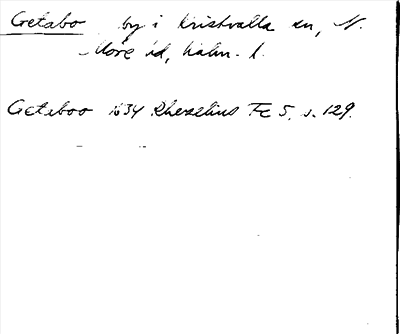 Getabo by i Kristvalla sn, N.
Möre hd, Kalm. l.
Geteboo 1634 Rhezelius Fc 5, s. 129.